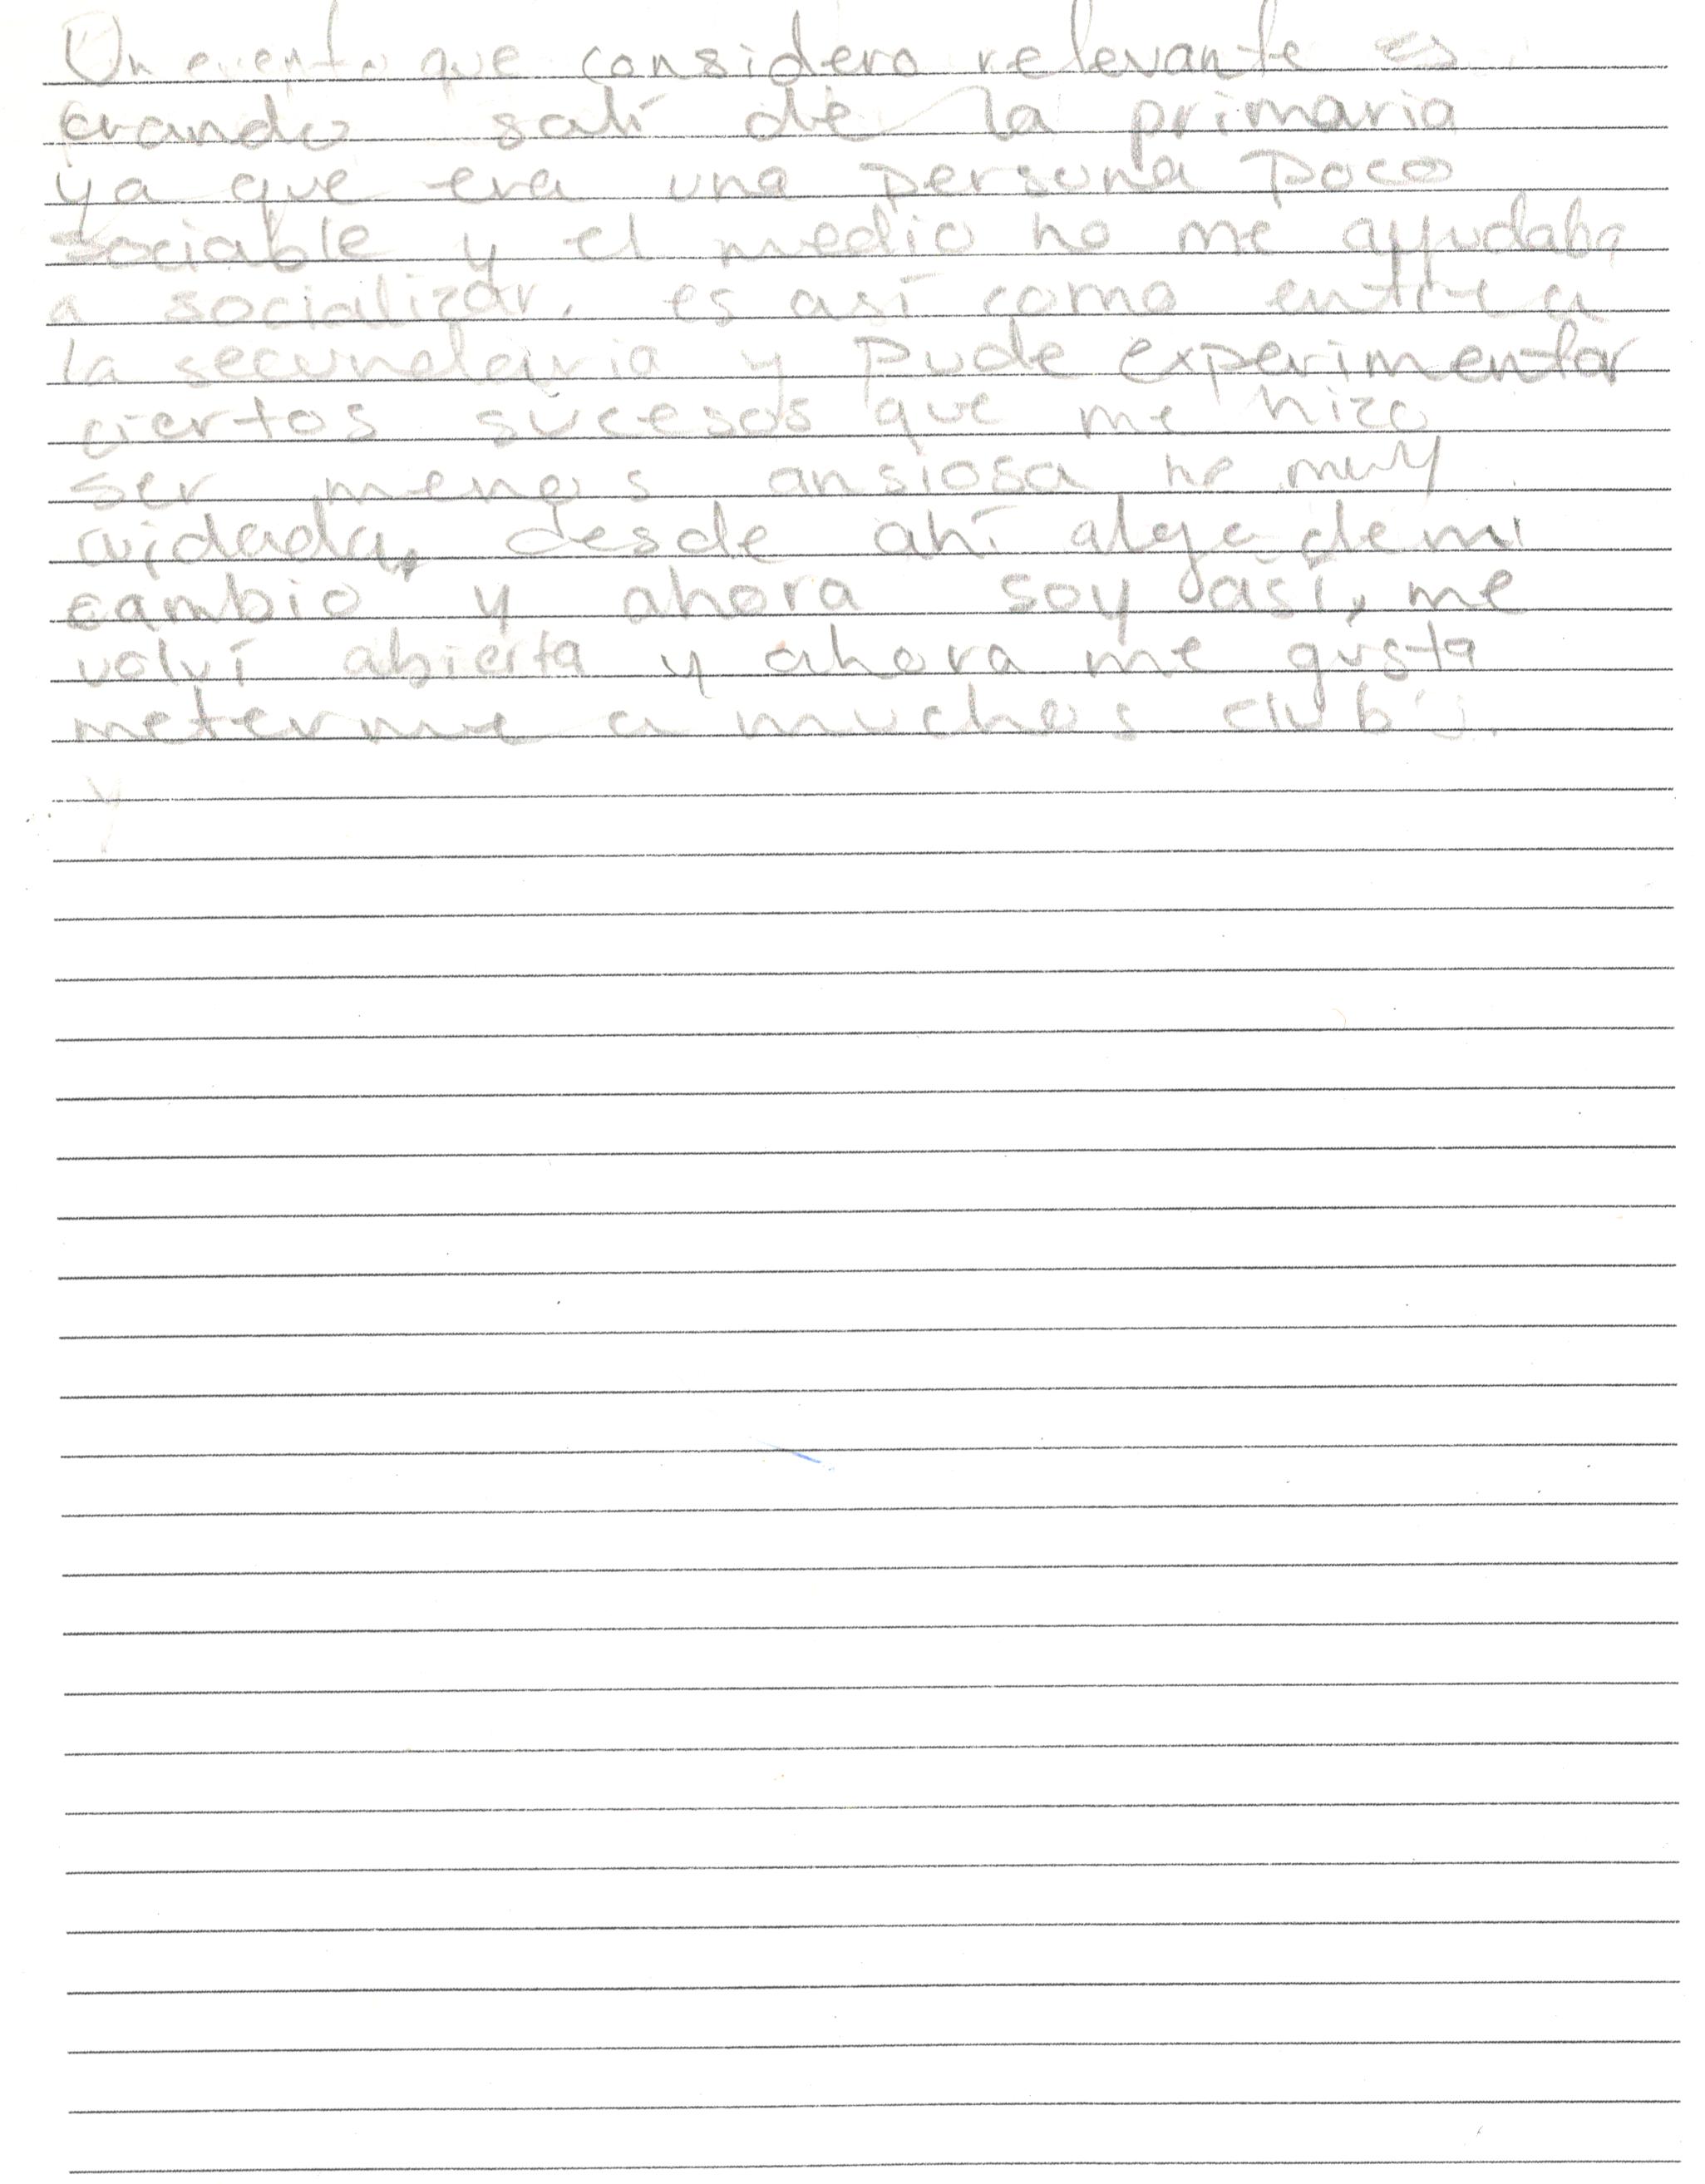 Un evento que considero relevante es
cuando salí de la primaria
ya que era una persona poco
sociable y el medio no me ayudaba
a socializar, es así como entre a
la secundaria y pude experimentar
ciertos sucesos que me hizo
ser menos ansiosa no muy
cuidada, desde ahí algo de mi
cambio y ahora soy así, me
volví abierta y ahora me gusta
meterme a muchos club's.